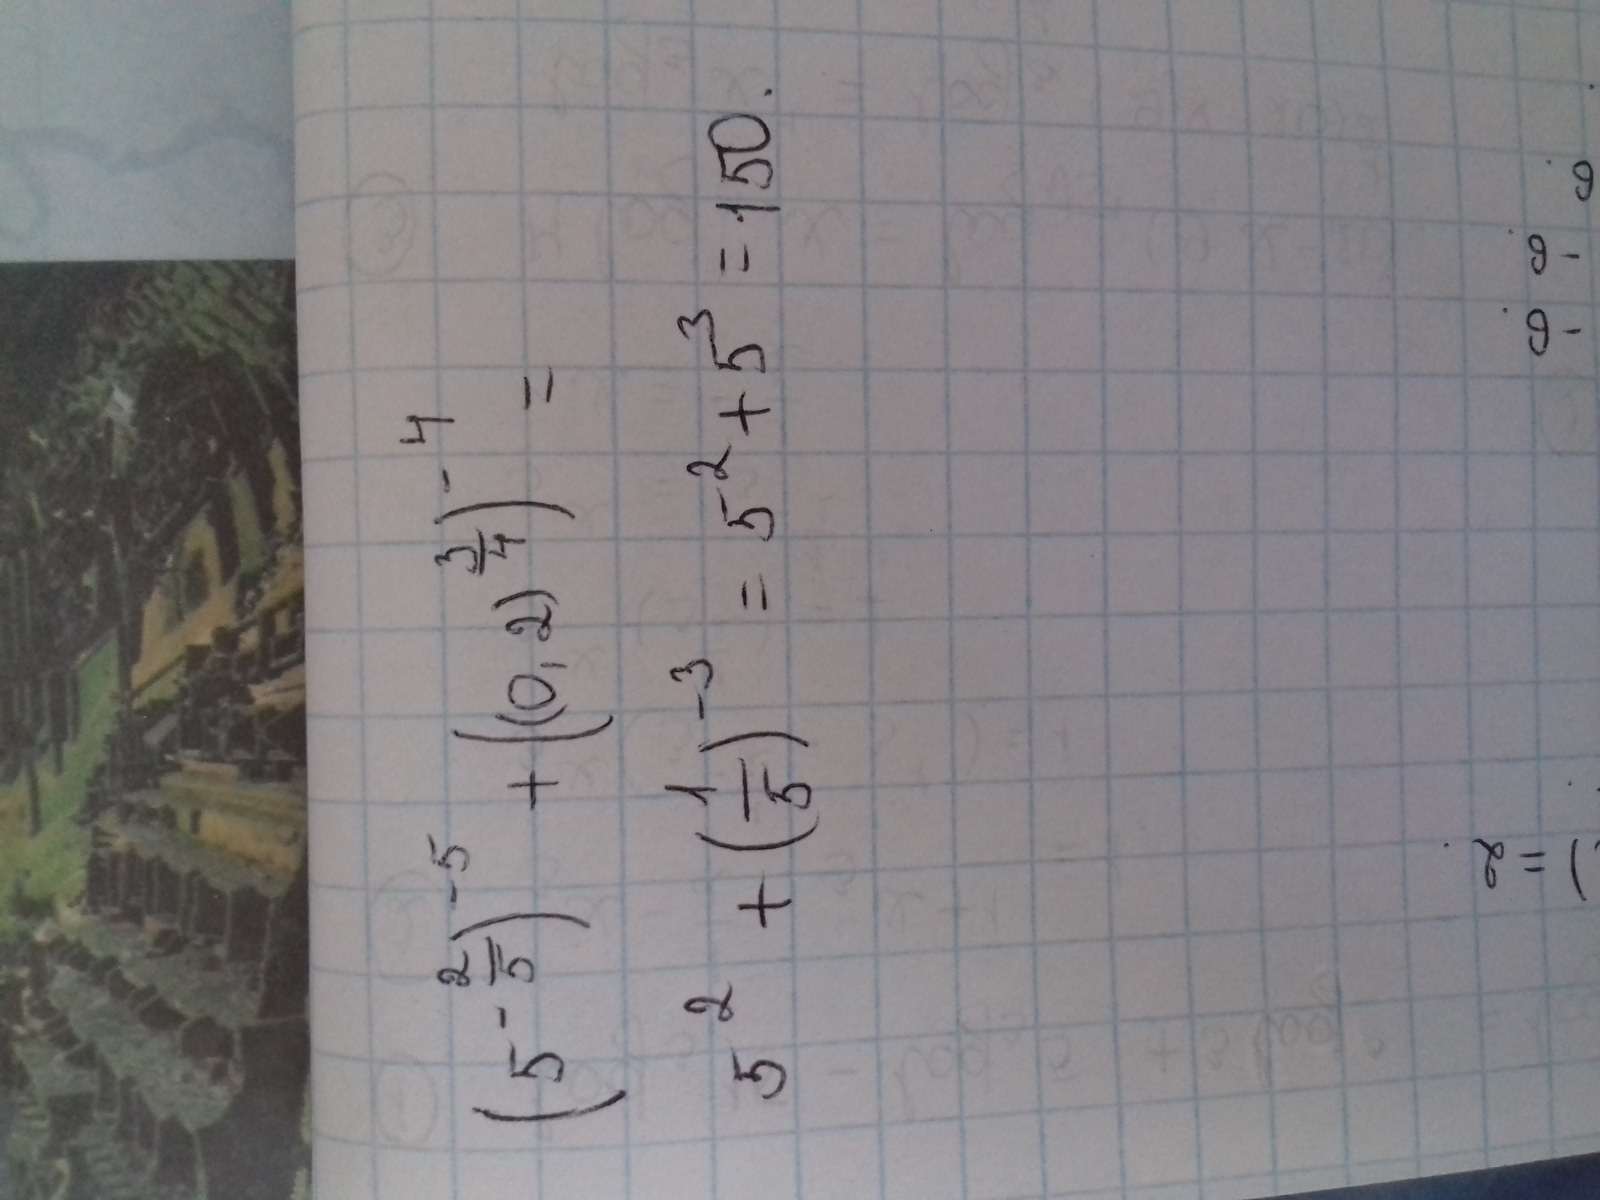 (5^{-\frac{2}{5}})^{-5} + ((0,2)^{\frac{3}{4}})^{-4} =
5^2 + (\frac{1}{5})^{-3} = 5^2 + 5^3 = 150.